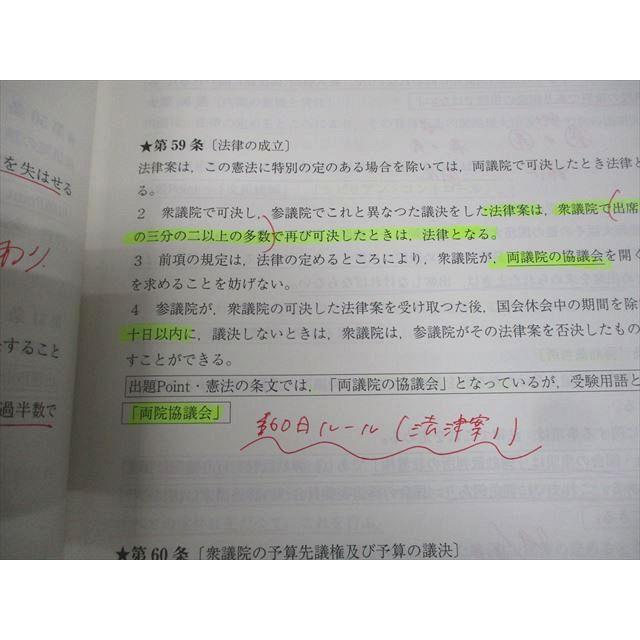 を失はせる
★第59条〔法律の成立〕
法律案は，この憲法に特別の定のある場合を除いては，両議院で可決したとき法律と
る。
2 衆議院で可決し，参議院でこれと異なつた議決をした法律案は，衆議院で出席
の三分の二以上の多数で再び可決したときは，法律となる。
3 前項の規定は，法律の定めるところにより，衆議院が，両議院の協議会を開く
を求めることを妨げない。
4 参議院が，衆議院の可決した法律案を受け取つた後，国会休会中の期間を除
十日以内に，議決しないときは，衆議院は，参議院がその法律案を否決したもの
すことができる。
すること
過半数で
出題Point・憲法の条文では，「両議院の協議会」となっているが，受験用語と
「両院協議会」
60日ルール（法津案）
★第60条〔衆議院の予算先議権及び予算の議決〕